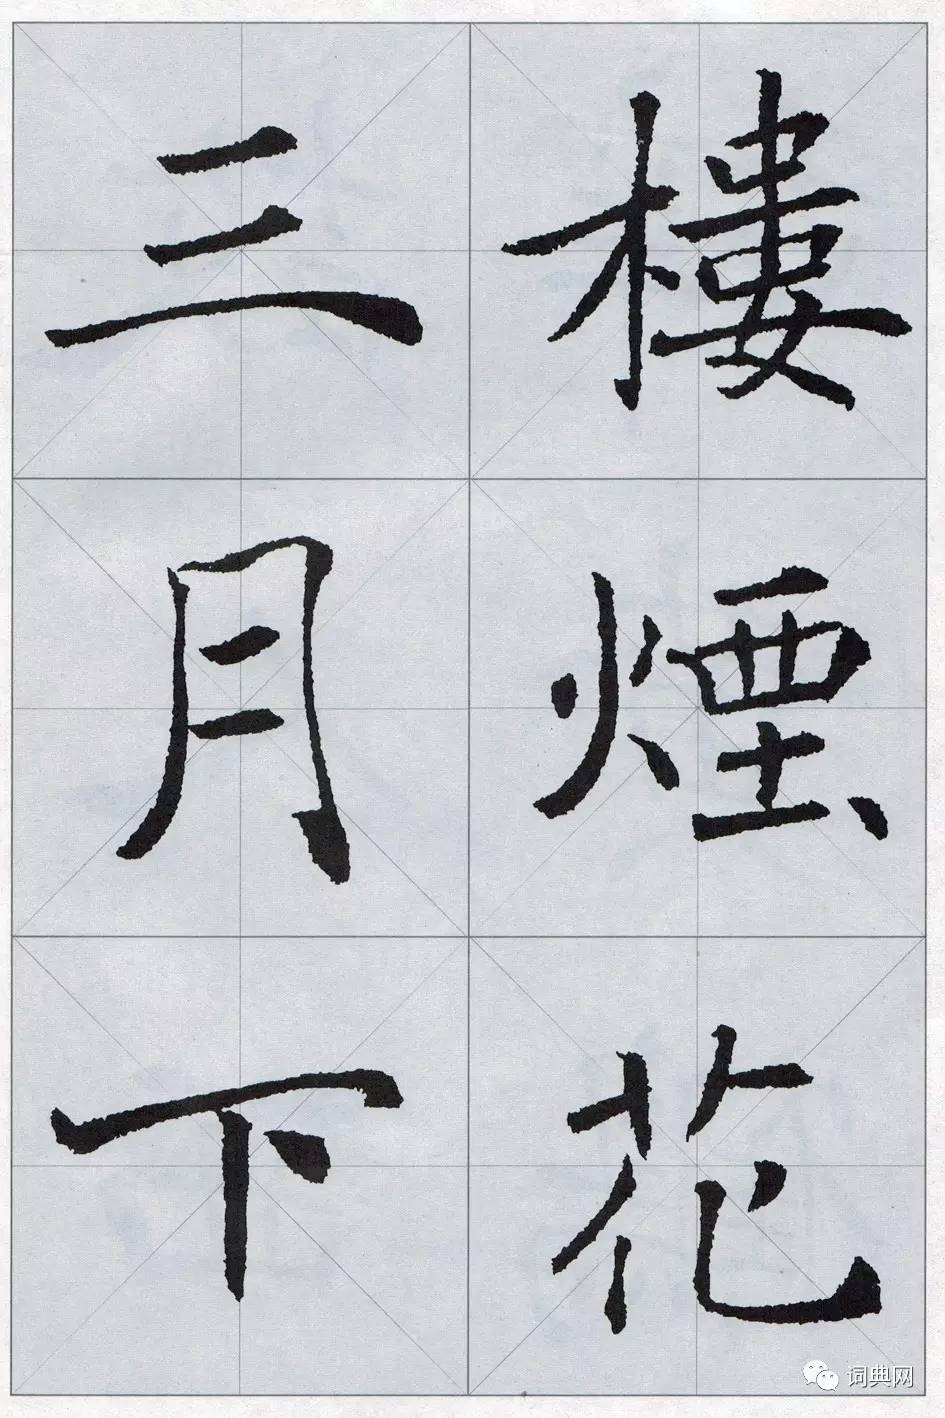 樓煙花
三月下
词典网